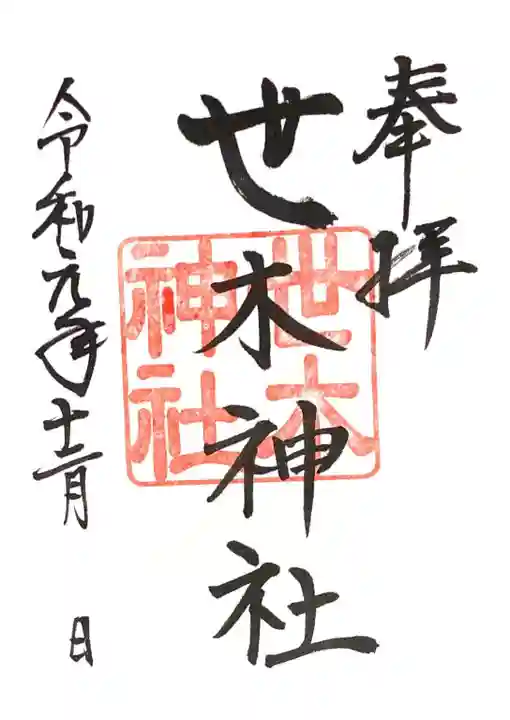 奉拝
世木神社
世木神社
令和元年十二月 日